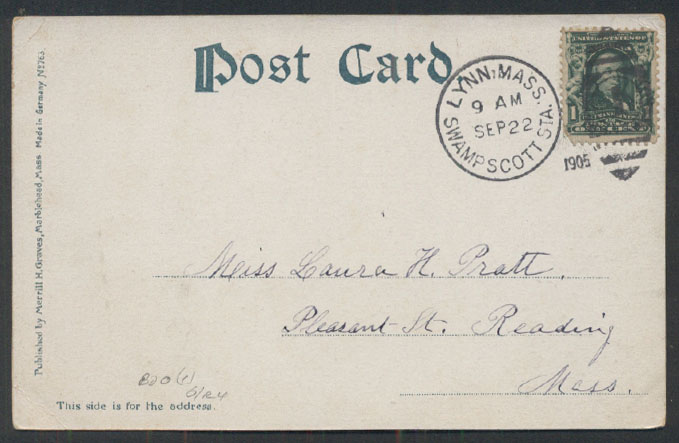 Post Card
LYNN, MASS.
9 AM
SEP 22
SWAMPSCOTT STA.
1905
UNITED STATES OF
1
Miss Laura H. Pratt,
Pleasant St. Reading
Mass.
This side is for the address.
Published by Merrill H. Graves, Marblehead, Mass Made in Germany No 763